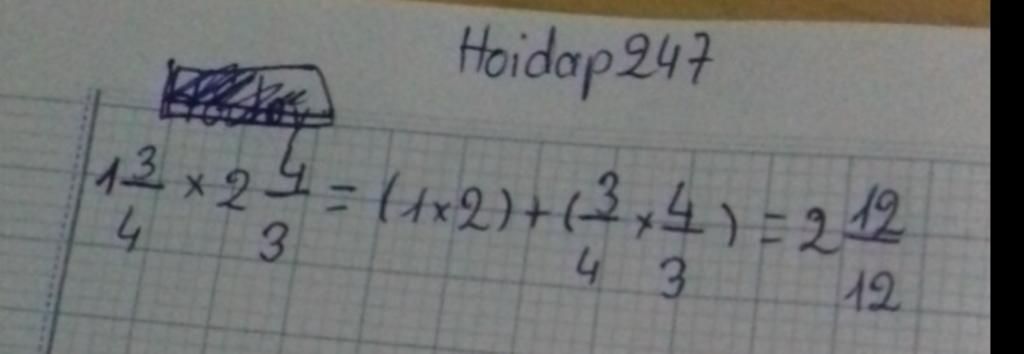 Hoidap247
1 3/4 × 2 4/3 = (1×2) + (3/4 × 4/3) = 2 12/12